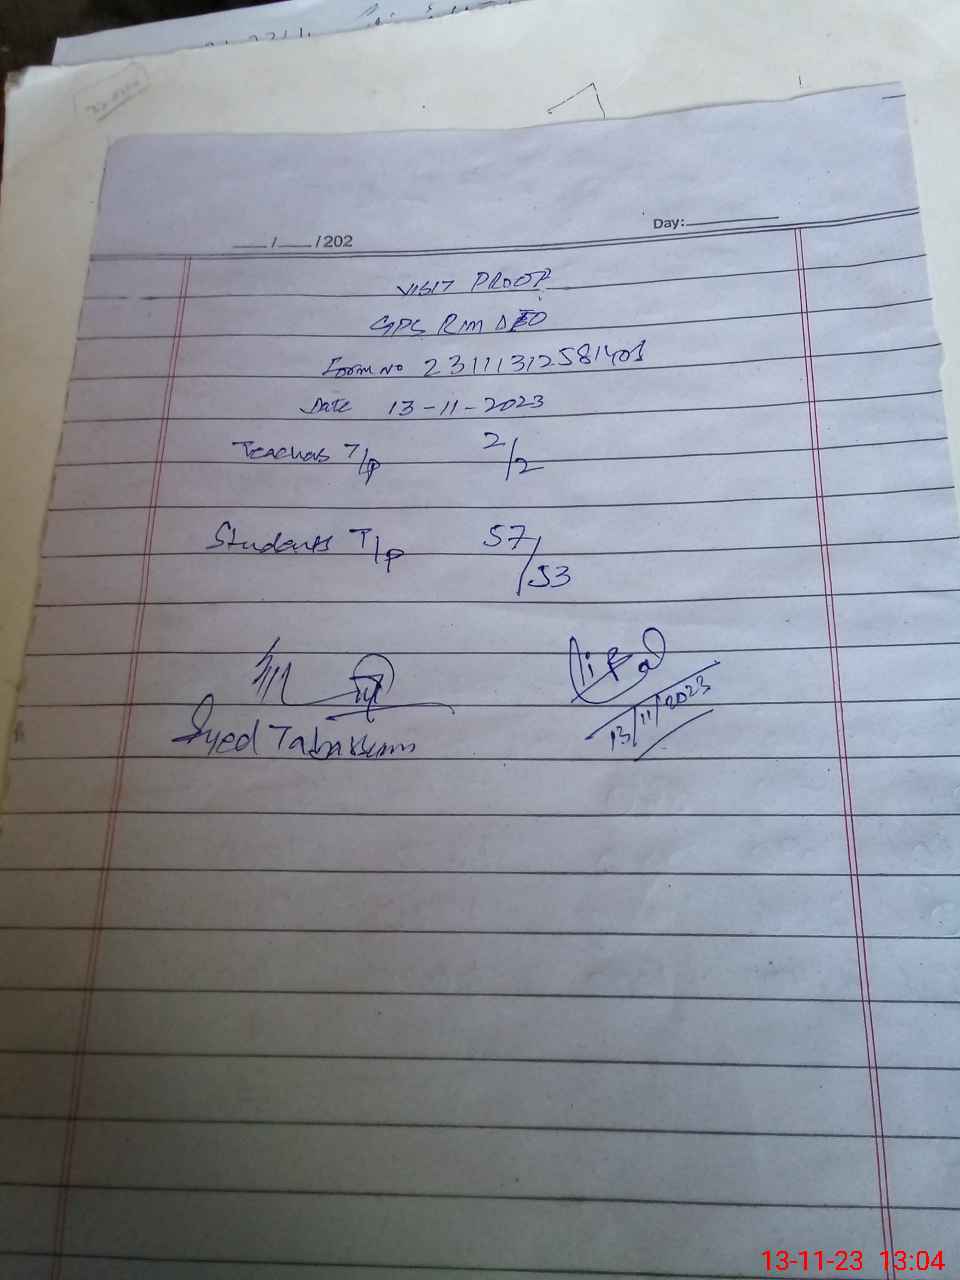 ___/___/202
Day:
VISIT PROOF
GPS Rm DEO
Form No 23111312581401
Date 13-11-2023
Teachers T/p 2/2
Students T/p 57/53
Syed Tabassum
13/11/2023
13-11-23 13:04